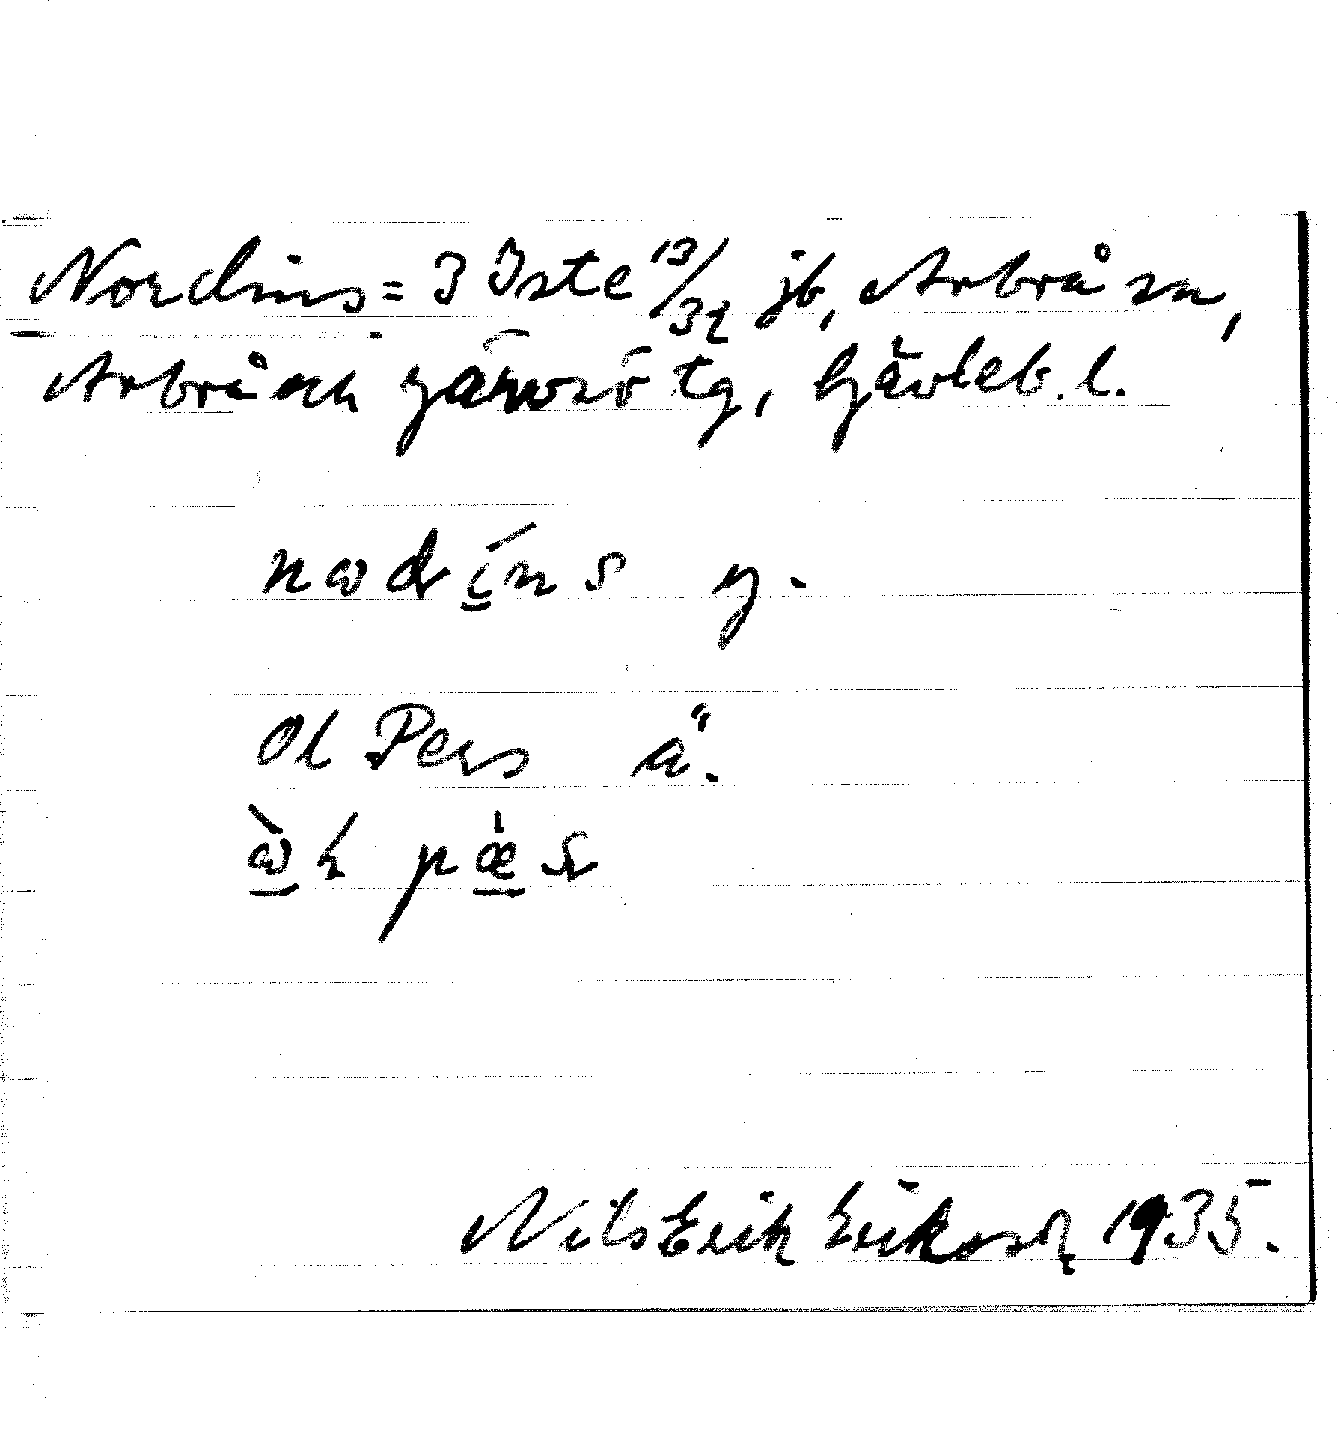 Nordins = 3 Iste 13/32 jb, Arbrå sn,
Arbrå och Järvsö tg, Gävleb. l.
nωdíns y.
Ol Pers ä.
ὼl pæ̀s
Nils Erik Eriksson 1935.